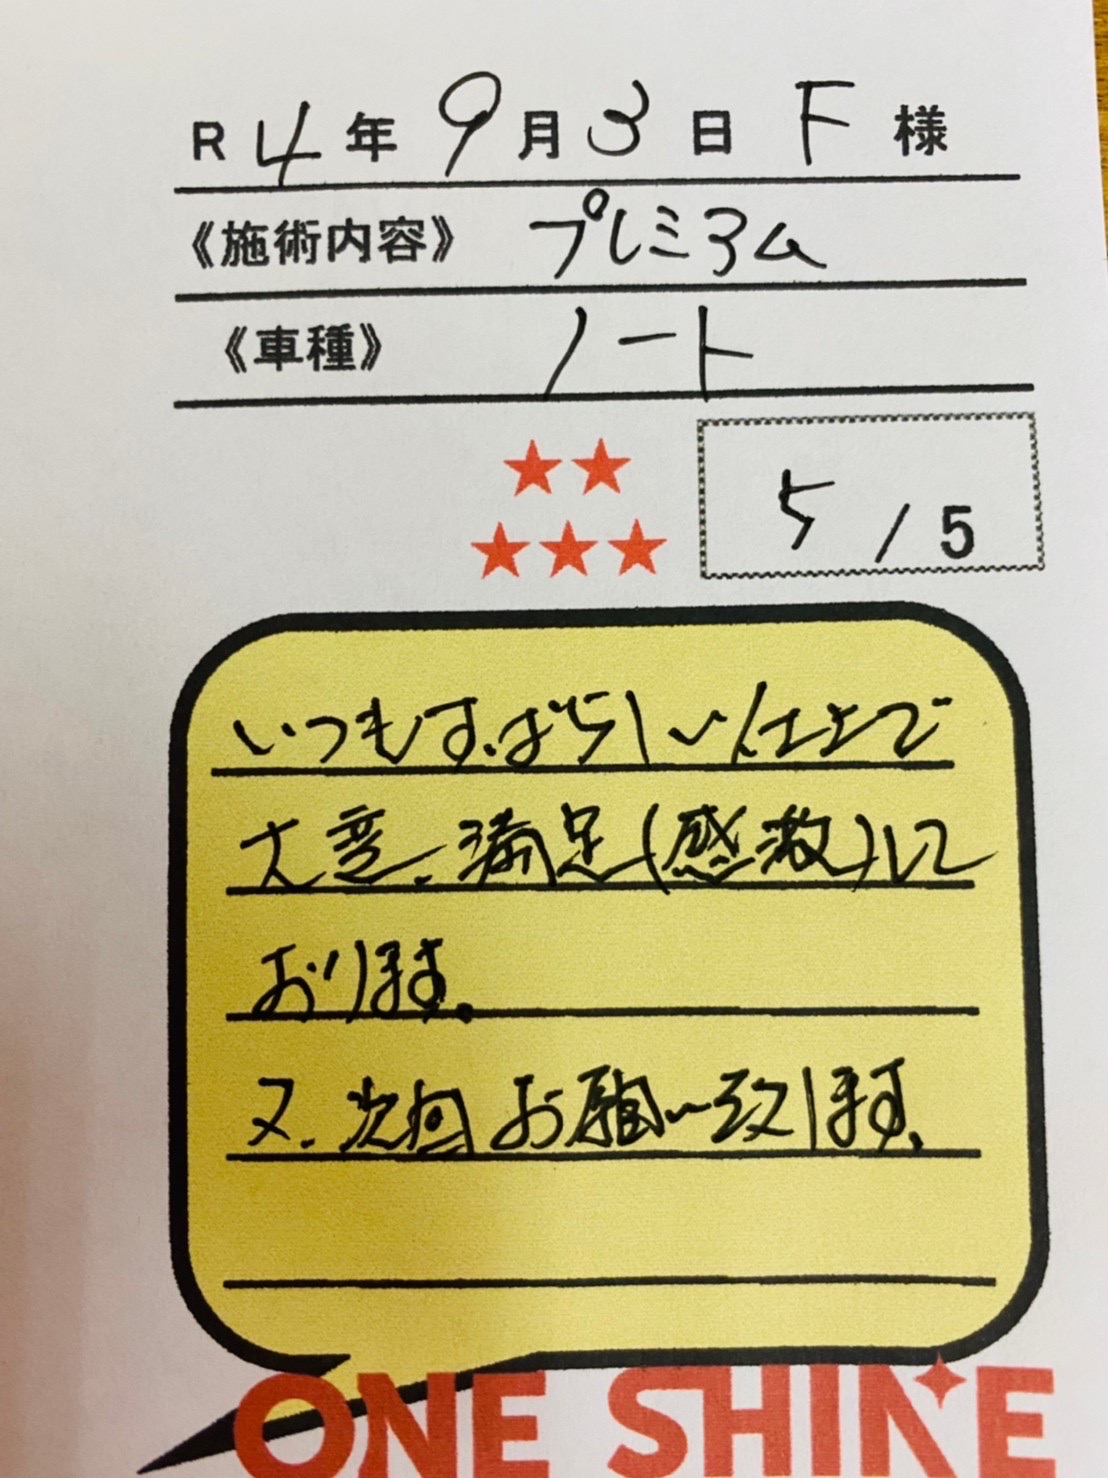 R4年9月3日 F様
《施術内容》 プレミアム
《車種》 ノート
★★
★★★
5/5
いつもすばらしい仕上で
大変、満足(感激)して
おります。
又、次回お願い致します、
ONE SHINE